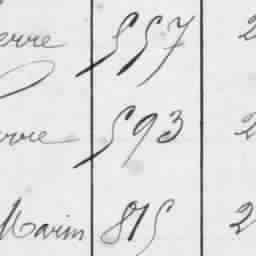 erre 557 2
erre 593 2
Marin 815 2